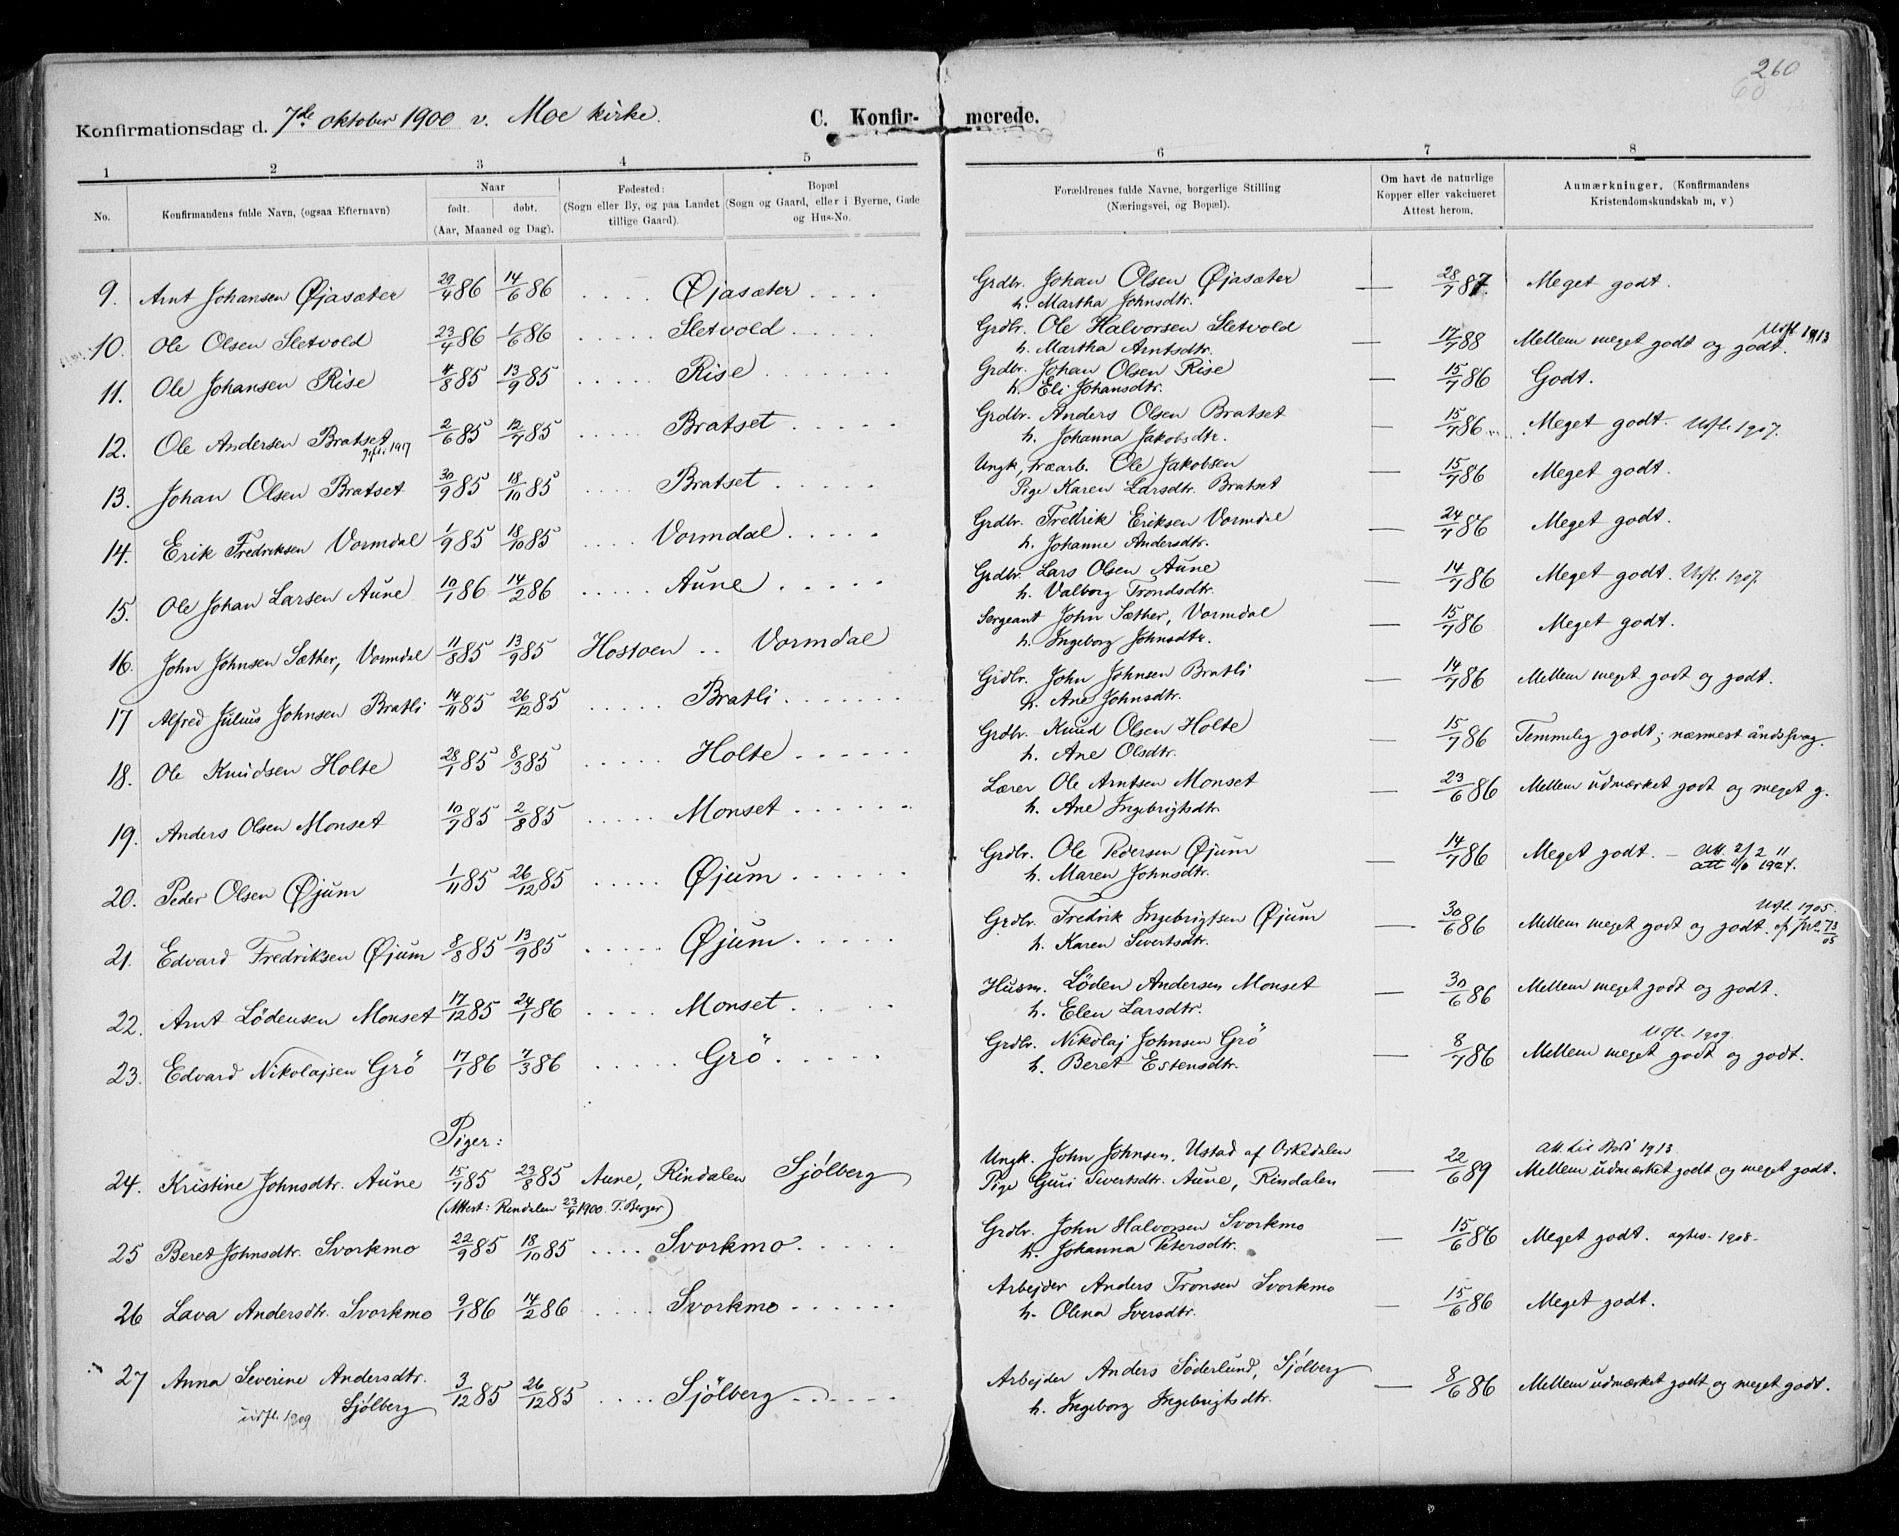 260
60
Konfirmationsdag d. 7de oktober 1900 v. Moe kirke. C. Konfir- merede.
1 2 3 4 5 6 7 8
No. Konfirmandens fulde Navn, (ogsaa Efternavn) Naar født. døbt. (Aar, Maaned og Dag). Fødested: (Sogn eller By, og paa Landet tillige Gaard). Bopæl (Sogn og Gaard, eller i Byerne, Gade og Hus-No. Forældrenes fulde Navne, borgerlige Stilling (Næringsvei, og Bopæl). Om havt de naturlige Kopper eller vakcineret Attest herom. Anmærkninger. (Konfirmandens Kristendomskundskab m, v)
9. Arnt Johansen Øjasæter 29/4 86 14/6 86 .... Øjasæter .... Grdbr. Johan Olsen Øjasæter — 28/7 87. Meget godt.
h. Martha Johnsdtr.
10. Ole Olsen Sletvold 23/4 86 1/6 86 ..... Sletvold ..... Grdbr. Ole Halvorsen Sletvold — 17/7 88 Mellem meget godt og godt. Utfl. 1913
h. Martha Arntsdtr.
11. Ole Johansen Rise 4/8 85 13/9 85 ..... Rise ....... Grdbr. Johan Olsen Rise — 15/7 86 Godt.
h. Eli Johansdtr.
12. Ole Andersen Bratset 2/6 85 12/7 85 ..... Bratset ..... Grdbr. Anders Olsen Bratset — 15/7 86 Meget godt. Utfl. 1907.
gift. 1917 h. Johanna Jakobsdtr.
13. Johan Olsen Bratset 30/9 85 18/10 85 .... Bratset ..... Ungk, træarb. Ole Jakobsen — 15/7 86 Meget godt.
Pige Karen Larsdtr. Bratset
14. Erik Fredriksen Vormdal 1/9 85 18/10 85 .... Vormdal ..... Grdbr. Fredrik Eriksen Vormdal — 24/7 86 Meget godt.
h. Johanne Andersdtr.
15. Ole Johan Larsen Aune 10/1 86 14/2 86 ..... Aune .... Grdbr. Lars Olsen Aune — 14/7 86 Meget godt. Utfl. 1907.
h. Valborg Trondsdtr.
16. John Johnsen Sæther, Vormdal 11/8 85 13/9 85 Hostoen .. Vormdal Sergeant John Sæther, Vormdal — 15/7 86 Meget godt.
h. Ingeborg Johnsdtr.
17 Alfred Julius Johnsen Bratli 14/11 85 26/12 85 ..... Bratli ...... Grdbr. John Johnsen Bratli — 14/7 86 Mellem meget godt og godt.
h. Ane Johnsdtr.
18. Ole Knudsen Holte 28/1 85 8/3 85 ..... Holte ..... Grdbr. Knud Olsen Holte — 15/7 86 Temmelig godt; nærmest åndssvag.
h. Ane Olsdtr.
19. Anders Olsen Monset 10/7 85 2/8 85 ..... Monset ...... Lærer Ole Arntsen Monset — 23/6 86 Mellem udmærket godt og meget g.
h. Ane Ingebrigtsdtr.
20. Peder Olsen Øjum 1/11 85 26/12 85 ..... Øjum ...... Grdbr. Ole Pedersen Øjum — 14/7 86 Meget godt. — Att. 2/2 11
h. Maren Johnsdtr. att 1927.
21. Edvard Fredriksen Øjum 8/8 85 13/9 85 ..... Øjum ..... Grdbr. Fredrik Ingebrigtsen Øjum — 30/6 86 Mellem meget godt og godt. Utfl. 1905. 73/05
h. Karen Sivertsdtr.
22. Arnt Lödensen Monset 17/12 85 24/1 86 .... Monset .... Husm. Löden Andersen Monset — 30/6 86 Mellem meget godt og godt.
h. Elen Larsdtr.
23. Edvard Nikolajsen Grö 17/1 86 7/3 86 ..... Grö ..... Grdbr. Nikolaj Johnsen Grö — 8/7 86 Mellem meget godt og godt. Utfl. 1909
h. Beret Estensdtr.
Piger:
24. Kristine Johnsdtr. Aune 15/7 85 23/8 85 Aune, Rindalen Sjölberg Ungk. John Johnsen, Ustad af Orkedalen — 22/6 89 Mellem udmærket godt og meget godt. att. til Bodö 1913
(Attest: Rindalen 23/9 1900. T. Berger) Pige Guri Sivertsdtr. Aune, Rindalen
25 Beret Johnsdtr. Svorkmo 22/9 85 18/10 85 .... Svorkmo ..... Grdbr. John Halvorsen Svorkmo — 15/6 86 Meget godt. 1908.
h. Johanna Petersdtr.
26 Lava Andersdtr. Svorkmo 9/1 86 14/2 86 .... Svorkmo ..... Arbejder Anders Tronsen Svorkmo — 15/6 86 Meget godt.
h. Olena Iversdtr.
27 Anna Severine Andersdtr. 3/12 85 26/12 85 .... Sjölberg ..... Arbejder Anders Söderlund, Sjölberg — 8/6 86 Mellem udmærket godt og meget godt.
udfl. 1909 Sjölberg h. Ingeborg Ingebrigtsdtr.